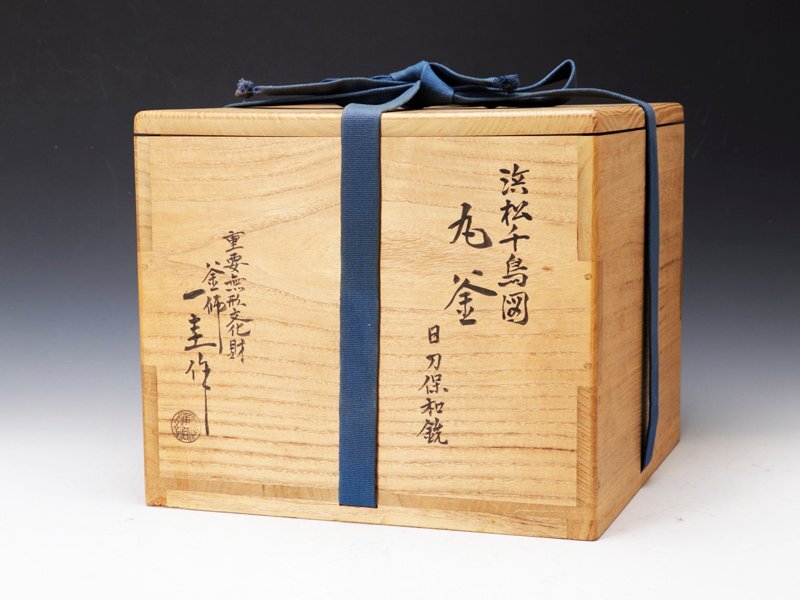 浜松千鳥図
丸釜
日刀保和銑
重要無形文化財
釜師
一圭作